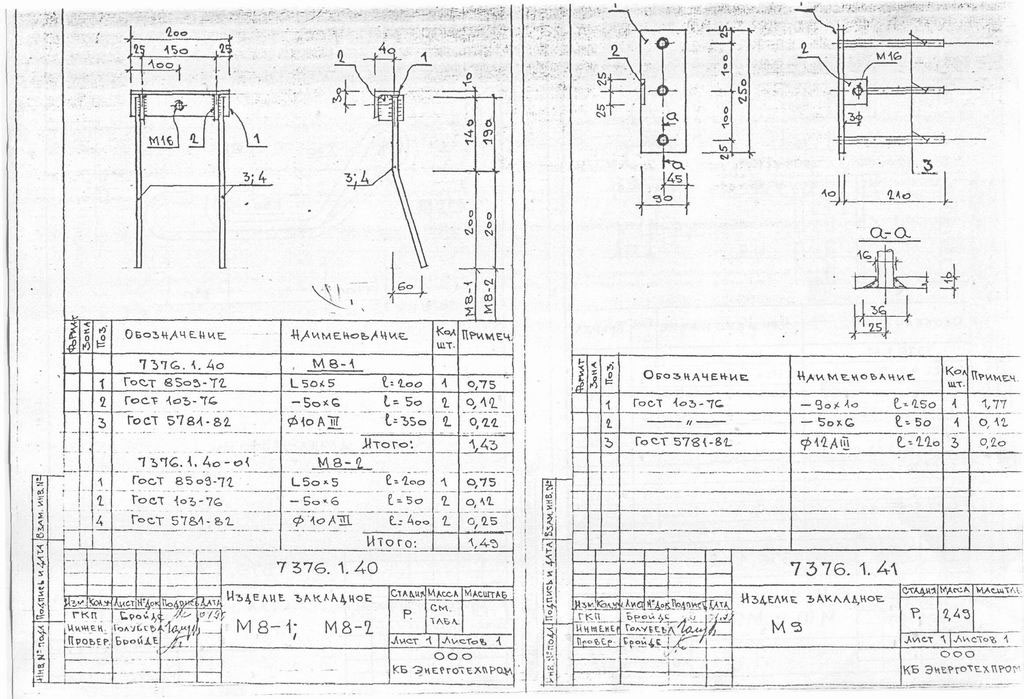 200
25 150 25
100
М16 2 1
3;4
40
2 1
30
10
140 190
3;4
200 200
60
М8-1 М8-2
Формат Зона Поз. Обозначение Наименование Кол. шт. Примеч.
7376.1.40 М8-1
1 ГОСТ 8509-72 L50x5 l=200 1 0,75
2 ГОСТ 103-76 -50x6 l=50 2 0,12
3 ГОСТ 5781-82 Ф10АIII l=350 2 0,22
Итого: 1,43
7376.1.40-01 М8-2
1 ГОСТ 8509-72 L50x5 l=200 1 0,75
2 ГОСТ 103-76 -50x6 l=50 2 0,12
4 ГОСТ 5781-82 Ф10АIII l=400 2 0,25
Итого: 1,49
7376.1.40
Изм Кол.уч Лист №док Подпись Дата
ГКП Бройде
Инжен. Голубева
Провер. Бройде
Изделие закладное
М8-1; М8-2
Стадия Масса Масштаб
Р. см. табл.
Лист 1 Листов 1
ООО
КБ Энерготехпром
Инв.№подл Подпись и дата Взам.инв.№
1
2
25
25
25 100 100 25
250
а
а
45
90
1
2
М16
30
3
10 210
а-а
16
10
36
25
Формат Зона Поз. Обозначение Наименование Кол шт. Примеч.
1 ГОСТ 103-76 -90x10 l=250 1 1,77
2 —〃— -50x6 l=50 1 0,12
3 ГОСТ 5781-82 Ф12АIII l=220 3 0,20
7376.1.41
Изм Кол.уч Лист №док Подпись Дата
ГКП Бройде
Инженер Голубева
Провер. Бройде
Изделие закладное
М9
Стадия Масса Масштаб
Р. 2,49
Лист 1 Листов 1
ООО
КБ Энерготехпром
Инв.№подл Подпись и дата Взам.инв.№